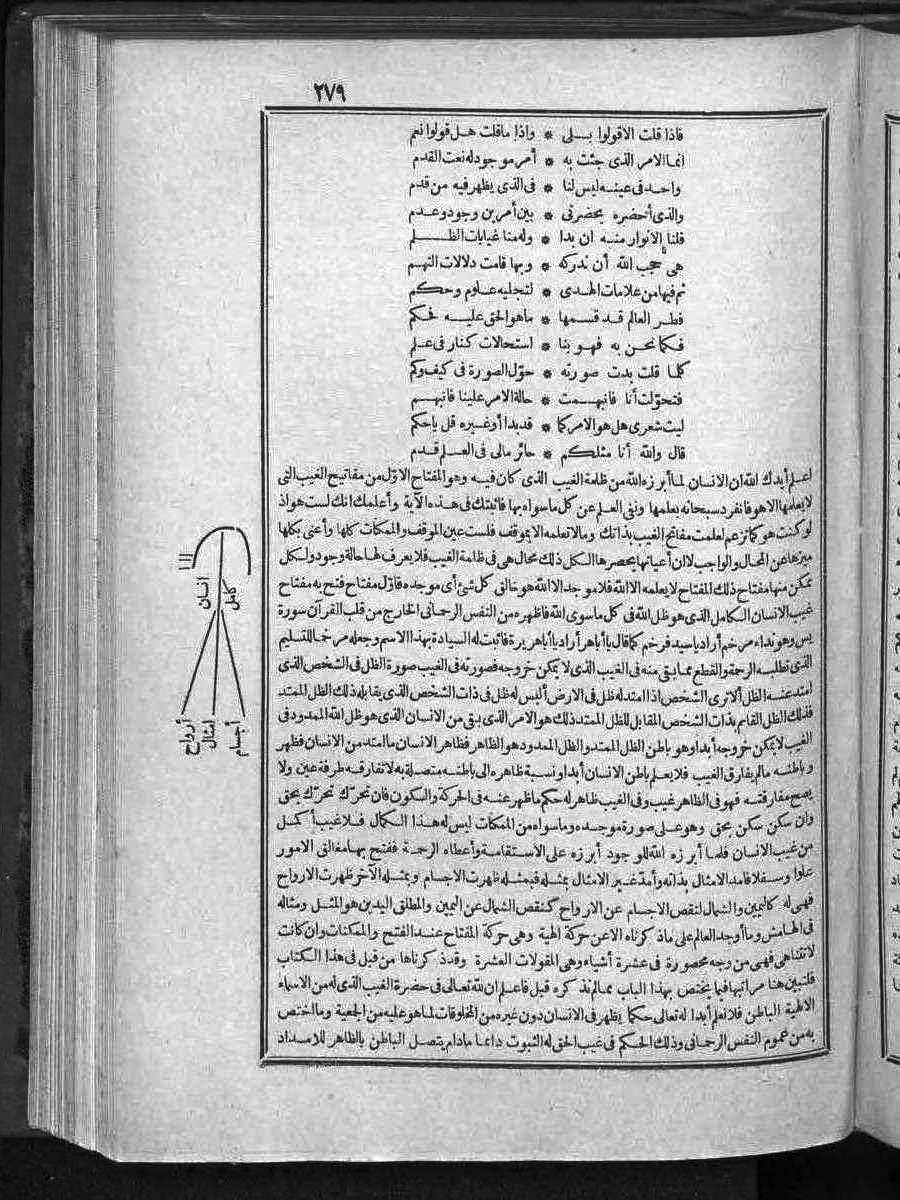 ٢٧٩
فاذا قلت الاقولوا بـــلى * واذا ماقلت هـل قولوا نعم
انما الامر الذى جئت به * أمر موجود له نعت القدم
واحد فى عينه ليس لنا * فى الذى يظهر فيه من قدم
والذى أحضره يحضرنى * بين أمرين وجود وعدم
فلنا الانوار منه ان بدا * وله منا غيابات الظلم
هى حجب الله أن ندركه * وبها قامت دلالات التهم
ثم فيها من علامات الهدى * لتجليه علوم وحكم
فطر العالم قد قسمها * ماهو الحق عليه فحكم
فكما نحن به فهو بنا * استحالات كنار فى علم
كلما قلت بدت صورته * حوّل الصورة فى كيف وكم
فتحوّلت أنا فانبهمت * حالة الامر علينا فانبهم
ليت شعرى هل هو الامر كما * قد بدا أو غيره قل ياحكم
قال والله أنا مثلكم * حائر مالى فى العلم قدم
اعلم أيدك الله ان الانسان لما أبرزه الله من ظلمة الغيب الذى كان فيه وهو المفتاح الاوّل من مفاتيح الغيب التى
لايعلمها الاهو فانفرد سبحانه بعلمها ونفى العلم عن كل ماسواه بها فأثبتك فى هذه الآية وأعلمك انك لست هو اذ
لو كنت هو كما تزعم لعلمت مفاتح الغيب بذاتك ومالا تعلمه الا بموقف فلست عين الموقف والممكنات كلها وأعنى بكلها
ميزها عن المحال والواجب لا ان أعيانها يحصرها الكل ذلك محال هى فى ظلمة الغيب فلا يعرف لها حالة وجود ولكل
ممكن منها مفتاح ذلك المفتاح لايعلمه الا الله فلا موجد الا الله هو خالق كل شئ أى موجده فأوّل مفتاح فتح به مفتاح
غيب الانسان الكامل الذى هو ظل الله فى كل ماسوى الله فأظهره من النفس الرحمانى الخارج من قلب القرآن سورة
يس وهو نداء مرخم أراد ياسيد فرخم كما قال يا أباهر أراد يا أباهريرة فأثبت له السيادة بهذا الاسم وجعله مرخما للتسليم
الذى تطلبه الرحمة والقطع مما بقى منه فى الغيب الذى لايمكن خروجه فصورته فى الغيب صورة الظل فى الشخص الذى
امتد عنه الظل ألا ترى الشخص اذا امتد له ظل فى الارض أليس له ظل فى ذات الشخص الذى يقابله ذلك الظل الممتد
فذلك الظل القائم بذات الشخص المقابل للظل الممتد ذلك هو الامر الذى بقى من الانسان الذى هو ظل الله الممدود فى
الغيب لايمكن خروجه أبدا وهو باطن الظل الممتد والظل الممدود هو الظاهر فظاهر الانسان ما امتد من الانسان فظهر
وباطنه مالم يفارق الغيب فلا يعلم باطن الانسان أبدا ونسبة ظاهره الى باطنه متصلة به لاتفارقه طرفة عين ولا
يصح مفارقته فهو فى الظاهر غيب وفى الغيب ظاهر له حكم ما ظهر عنه فى الحركة والسكون فان تحرّك تحرّك بحق
وان سكن سكن بحق وهو على صورة موجده وماسواه من الممكنات ليس له هذا الكمال فلا غيب أكمل
من غيب الانسان فلما أبرزه الله للوجود أبرزه على الاستقامة وأعطاه الرحمة ففتح بها مغالق الامور
علوا وسفلا فامد الامثال بذاته وأمدّ غير الامثال بمثله فبمثله ظهرت الاجسام وبمثله الآخر ظهرت الارواح
فهى له كاليمين والشمال لنقص الاجسام عن الارواح كنقص الشمال عن اليمين والمطلق اليدين هو المثل ومثاله
فى الهامش وما أوجد العالم على ماذكرناه الاعن حركة الهية وهى حركة المفتاح عند الفتح والممكنات وان كانت
لاتتناهى فهى من وجه محصورة فى عشرة أشياء وهى المقولات العشرة وقد ذكرناها من قبل فى هذا الكتاب
فلنبين هنا مراتبها فيما يختص بهذا الباب مما لم نذكره قبل فاعلم ان لله تعالى فى حضرة الغيب الذى له من الاسماء
الالهية الباطن فلا نعلم أبدا له تعالى حكما يظهر فى الانسان دون غيره من المخلوقات لما هو عليه من الجمعية وما اختص
به من عموم النفس الرحمانى وذلك الحكم فى غيب الحق له الثبوت دائما مادام يتصل الباطن بالظاهر للامداد
انسان
كامل
أرواح
أمثال
أجسام